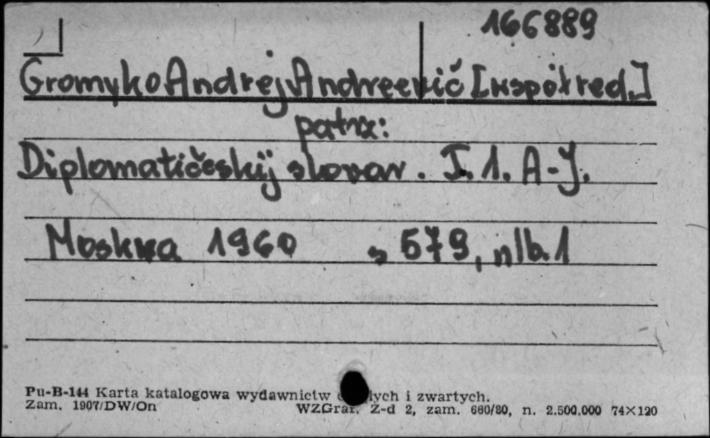 166889
Gromyko Andrej Andreevič [współred.]
patrz:
Diplomatičeskij slovar. T. 1. A-J.
Moskwa 1960 s 579, nlb. 1
Pu-B-144 Karta katalogowa wydawnictw i zwartych.
Zam. 1907/DW/On WZGraf. Z-d 2, zam. 660/80, n. 2.500.000 74×120